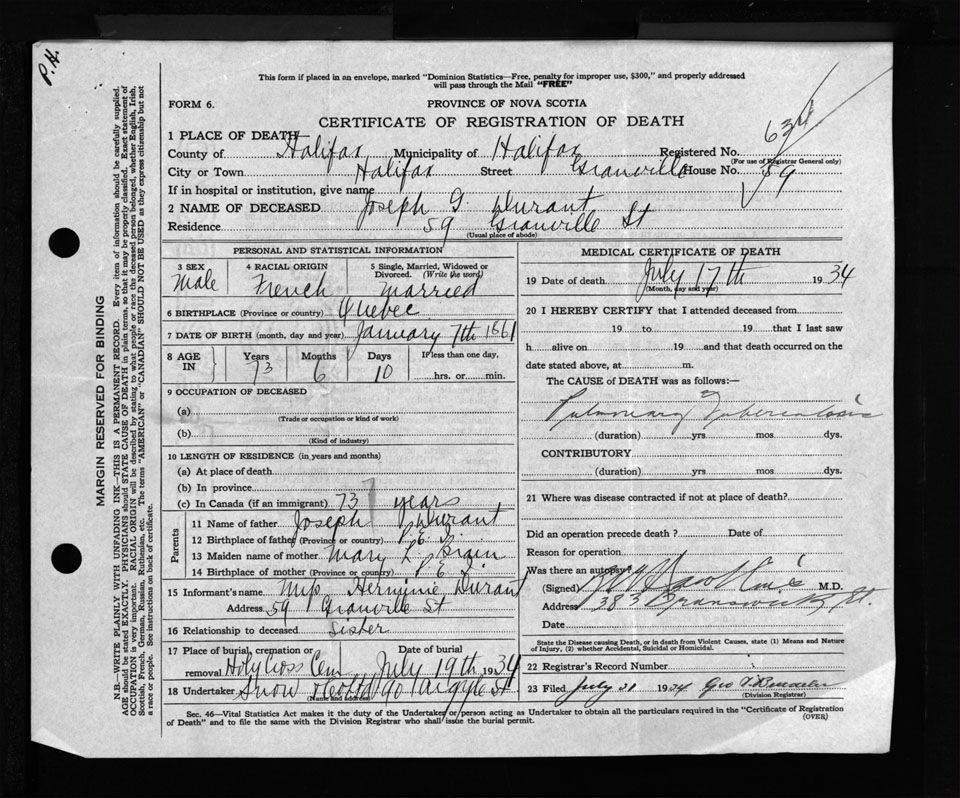 P.H.
This form if placed in an envelope, marked "Dominion Statistics—Free, penalty for improper use, $300," and properly addressed
will pass through the Mail "FREE"
FORM 6.
PROVINCE OF NOVA SCOTIA
CERTIFICATE OF REGISTRATION OF DEATH
1 PLACE OF DEATH
County of Halifax Municipality of Halifax Registered No. 63rd
(For use of Registrar General only)
City or Town Halifax Street Granville House No. 59
If in hospital or institution, give name
2 NAME OF DECEASED Joseph G. Durant
Residence 59 Granville St
(Usual place of abode)
PERSONAL AND STATISTICAL INFORMATION
3 SEX 4 RACIAL ORIGIN 5 Single, Married, Widowed or
Divorced. (Write the word)
Male French Married
6 BIRTHPLACE (Province or country) Quebec
7 DATE OF BIRTH (month, day and year) January 7th 1861
8 AGE IN Years Months Days If less than one day,
73 6 10 hrs. or min.
9 OCCUPATION OF DECEASED
(a)
(Trade or occupation or kind of work)
(b)
(Kind of industry)
10 LENGTH OF RESIDENCE (in years and months)
(a) At place of death
(b) In province
(c) In Canada (if an immigrant) 73 years
Parents
11 Name of father Joseph Durant
12 Birthplace of father (Province or country) P.E.I.
13 Maiden name of mother Mary L.
14 Birthplace of mother (Province or country) P.E.I.
15 Informant's name Miss Herminie Durant
Address 59 Granville St
16 Relationship to deceased Sister
17 Place of burial, cremation or removal Date of burial
Holy Cross Cem July 19th 1934
18 Undertaker Snow & Co Ltd 90 Argyle St
(Name and address)
MEDICAL CERTIFICATE OF DEATH
19 Date of death July 17th 1934
(Month, day and year)
20 I HEREBY CERTIFY that I attended deceased from
19 to 19 that I last saw
h alive on 19 and that death occurred on the
date stated above, at m.
The CAUSE of DEATH was as follows:—
Pulmonary Tuberculosis
(duration) yrs mos dys.
CONTRIBUTORY
(duration) yrs. mos. dys.
21 Where was disease contracted if not at place of death?
Did an operation precede death? Date of
Reason for operation
Was there an autopsy?
(Signed) M.D.
Address 383 Brunswick St.
Date
State the Disease causing Death, or in death from Violent Causes, state (1) Means and Nature
of Injury, (2) whether Accidental, Suicidal or Homicidal.
22 Registrar's Record Number
23 Filed July 21 1934 Geo
(Division Registrar)
Sec. 46—Vital Statistics Act make it the duty of the Undertaker or person acting as Undertaker to obtain all the particulars required in the "Certificate of Registration
of Death" and to file the same with the Division Registrar who shall issue the burial permit. (OVER)
MARGIN RESERVED FOR BINDING
N.B.—WRITE PLAINLY WITH UNFADING INK—THIS IS A PERMANENT RECORD. Every item of information should be carefully supplied.
AGE should be stated EXACTLY. PHYSICIANS should STATE CAUSE OF DEATH in plain terms, so that it may be properly classified. Exact statement of
OCCUPATION is very important. RACIAL ORIGIN will be described by stating to what people or race the deceased person belonged, whether English, Irish,
Scottish, French, German, Russian, Ruthenian, etc. The terms "AMERICAN" or "CANADIAN" SHOULD NOT BE USED as they express citizenship but not
a race or people. See instructions on back of certificate.